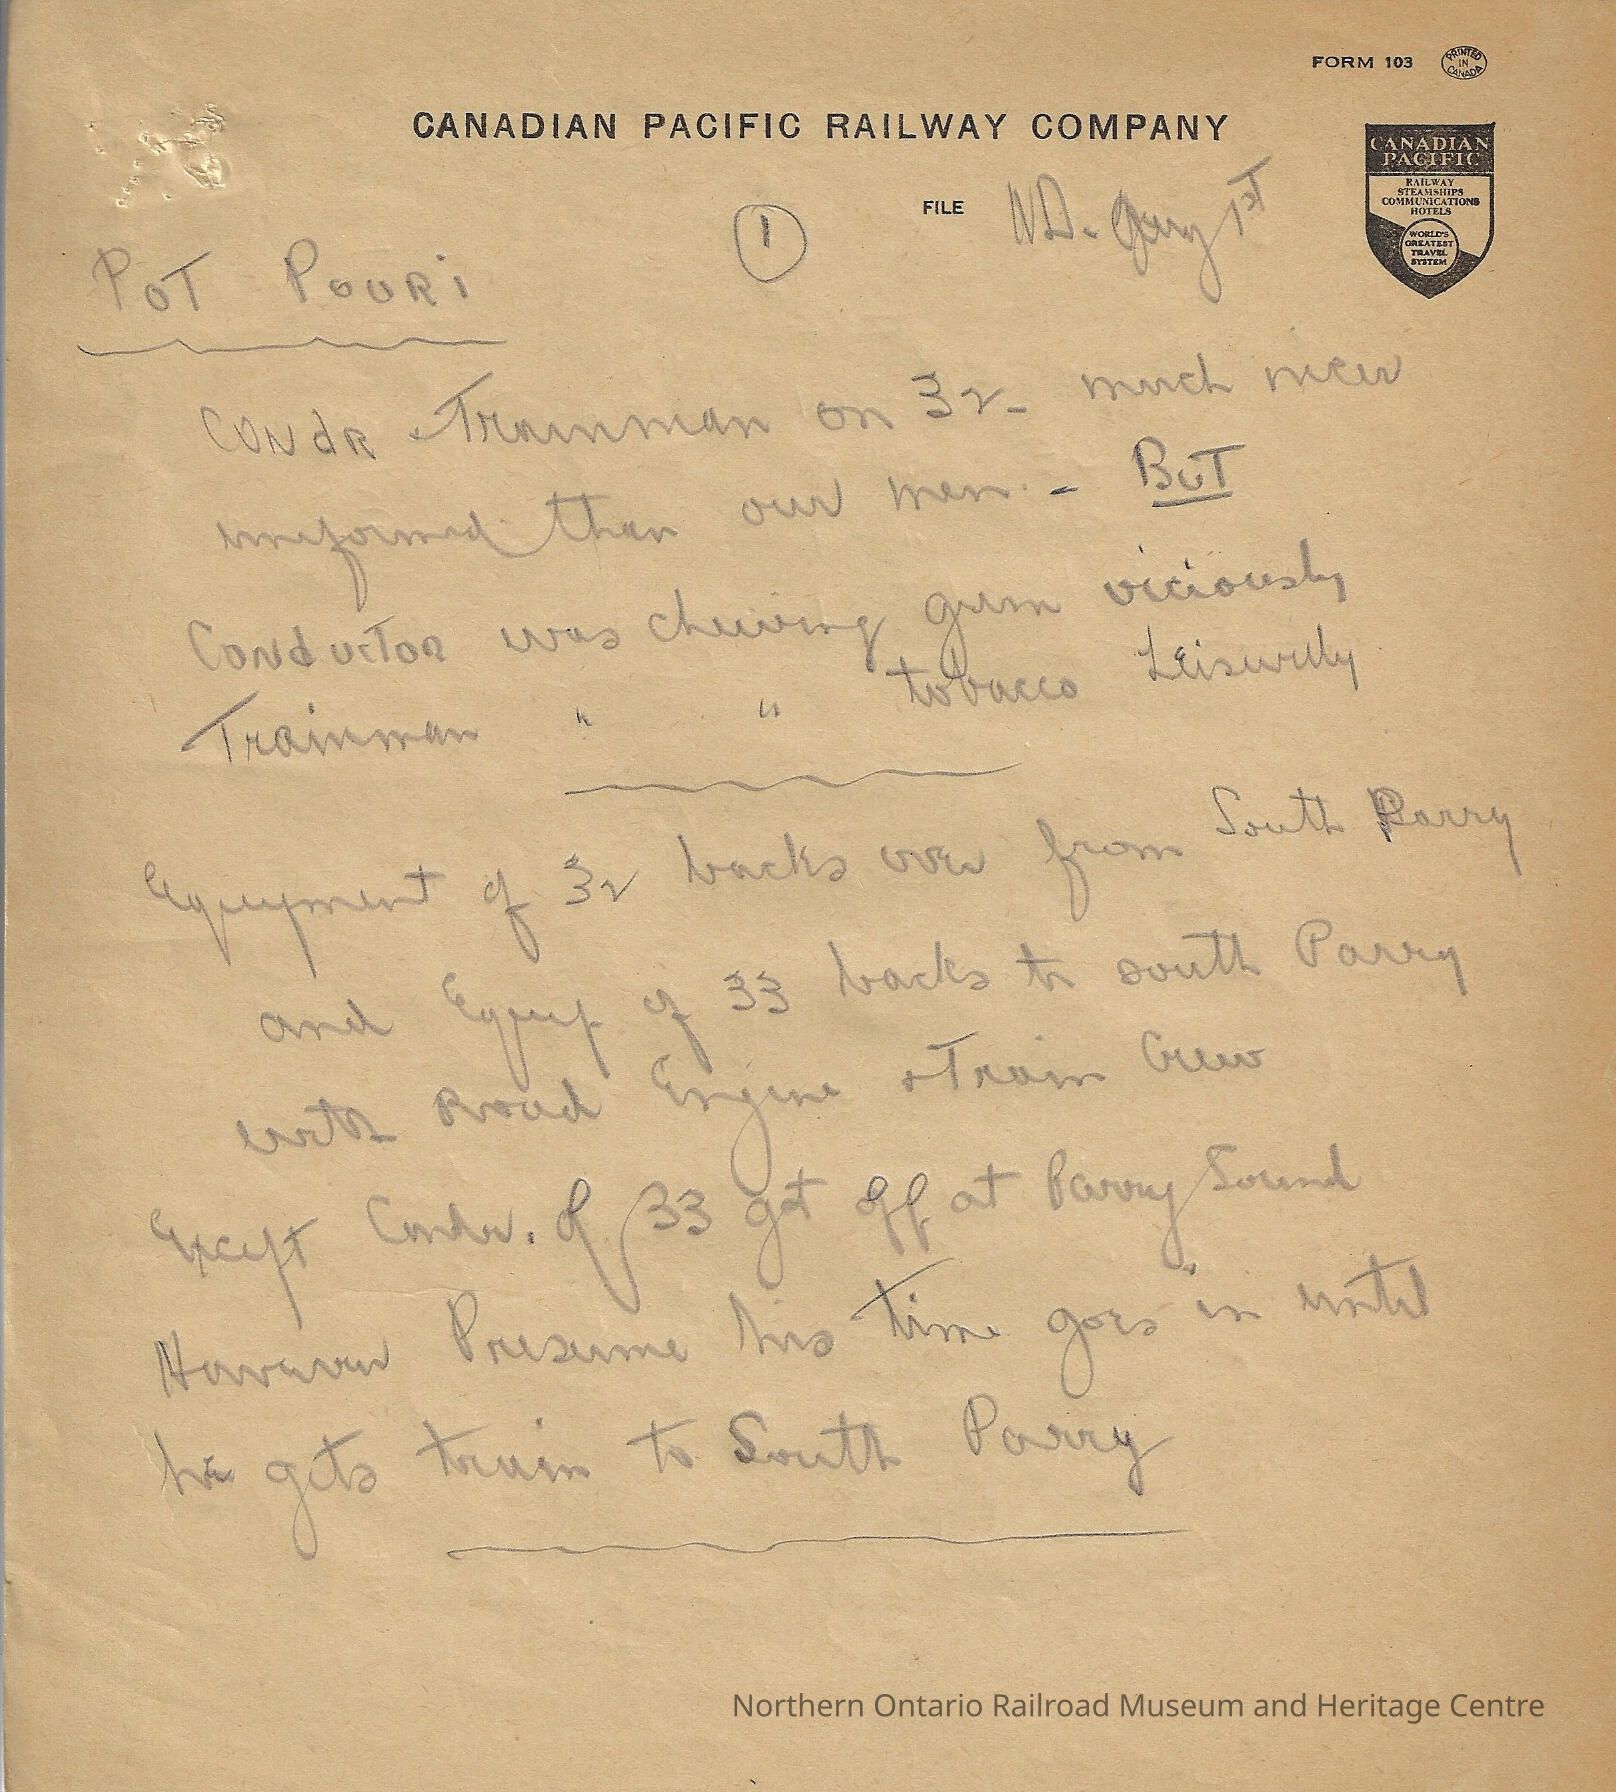 FORM 103 PRINTED IN CANADA
CANADIAN PACIFIC RAILWAY COMPANY
CANADIAN PACIFIC
RAILWAY
STEAMSHIPS
COMMUNICATIONS
HOTELS
WORLD'S
GREATEST
TRAVEL
SYSTEM
FILE 1st
1
POT POURi
CONdR & Trainman on 32 - much nicer
uniformed than our men. - BUT
Conductor was chewing gum viciously
Trainman " " tobacco Leisurely
Equipment of 32 backs over from South Parry
and Equip of 33 backs to south Parry
with Road Engine & Train Crew
Except Condr. of 33 got off at Parry Sound
However Presume his time goes in until
he gets train to South Parry
Northern Ontario Railroad Museum and Heritage Centre